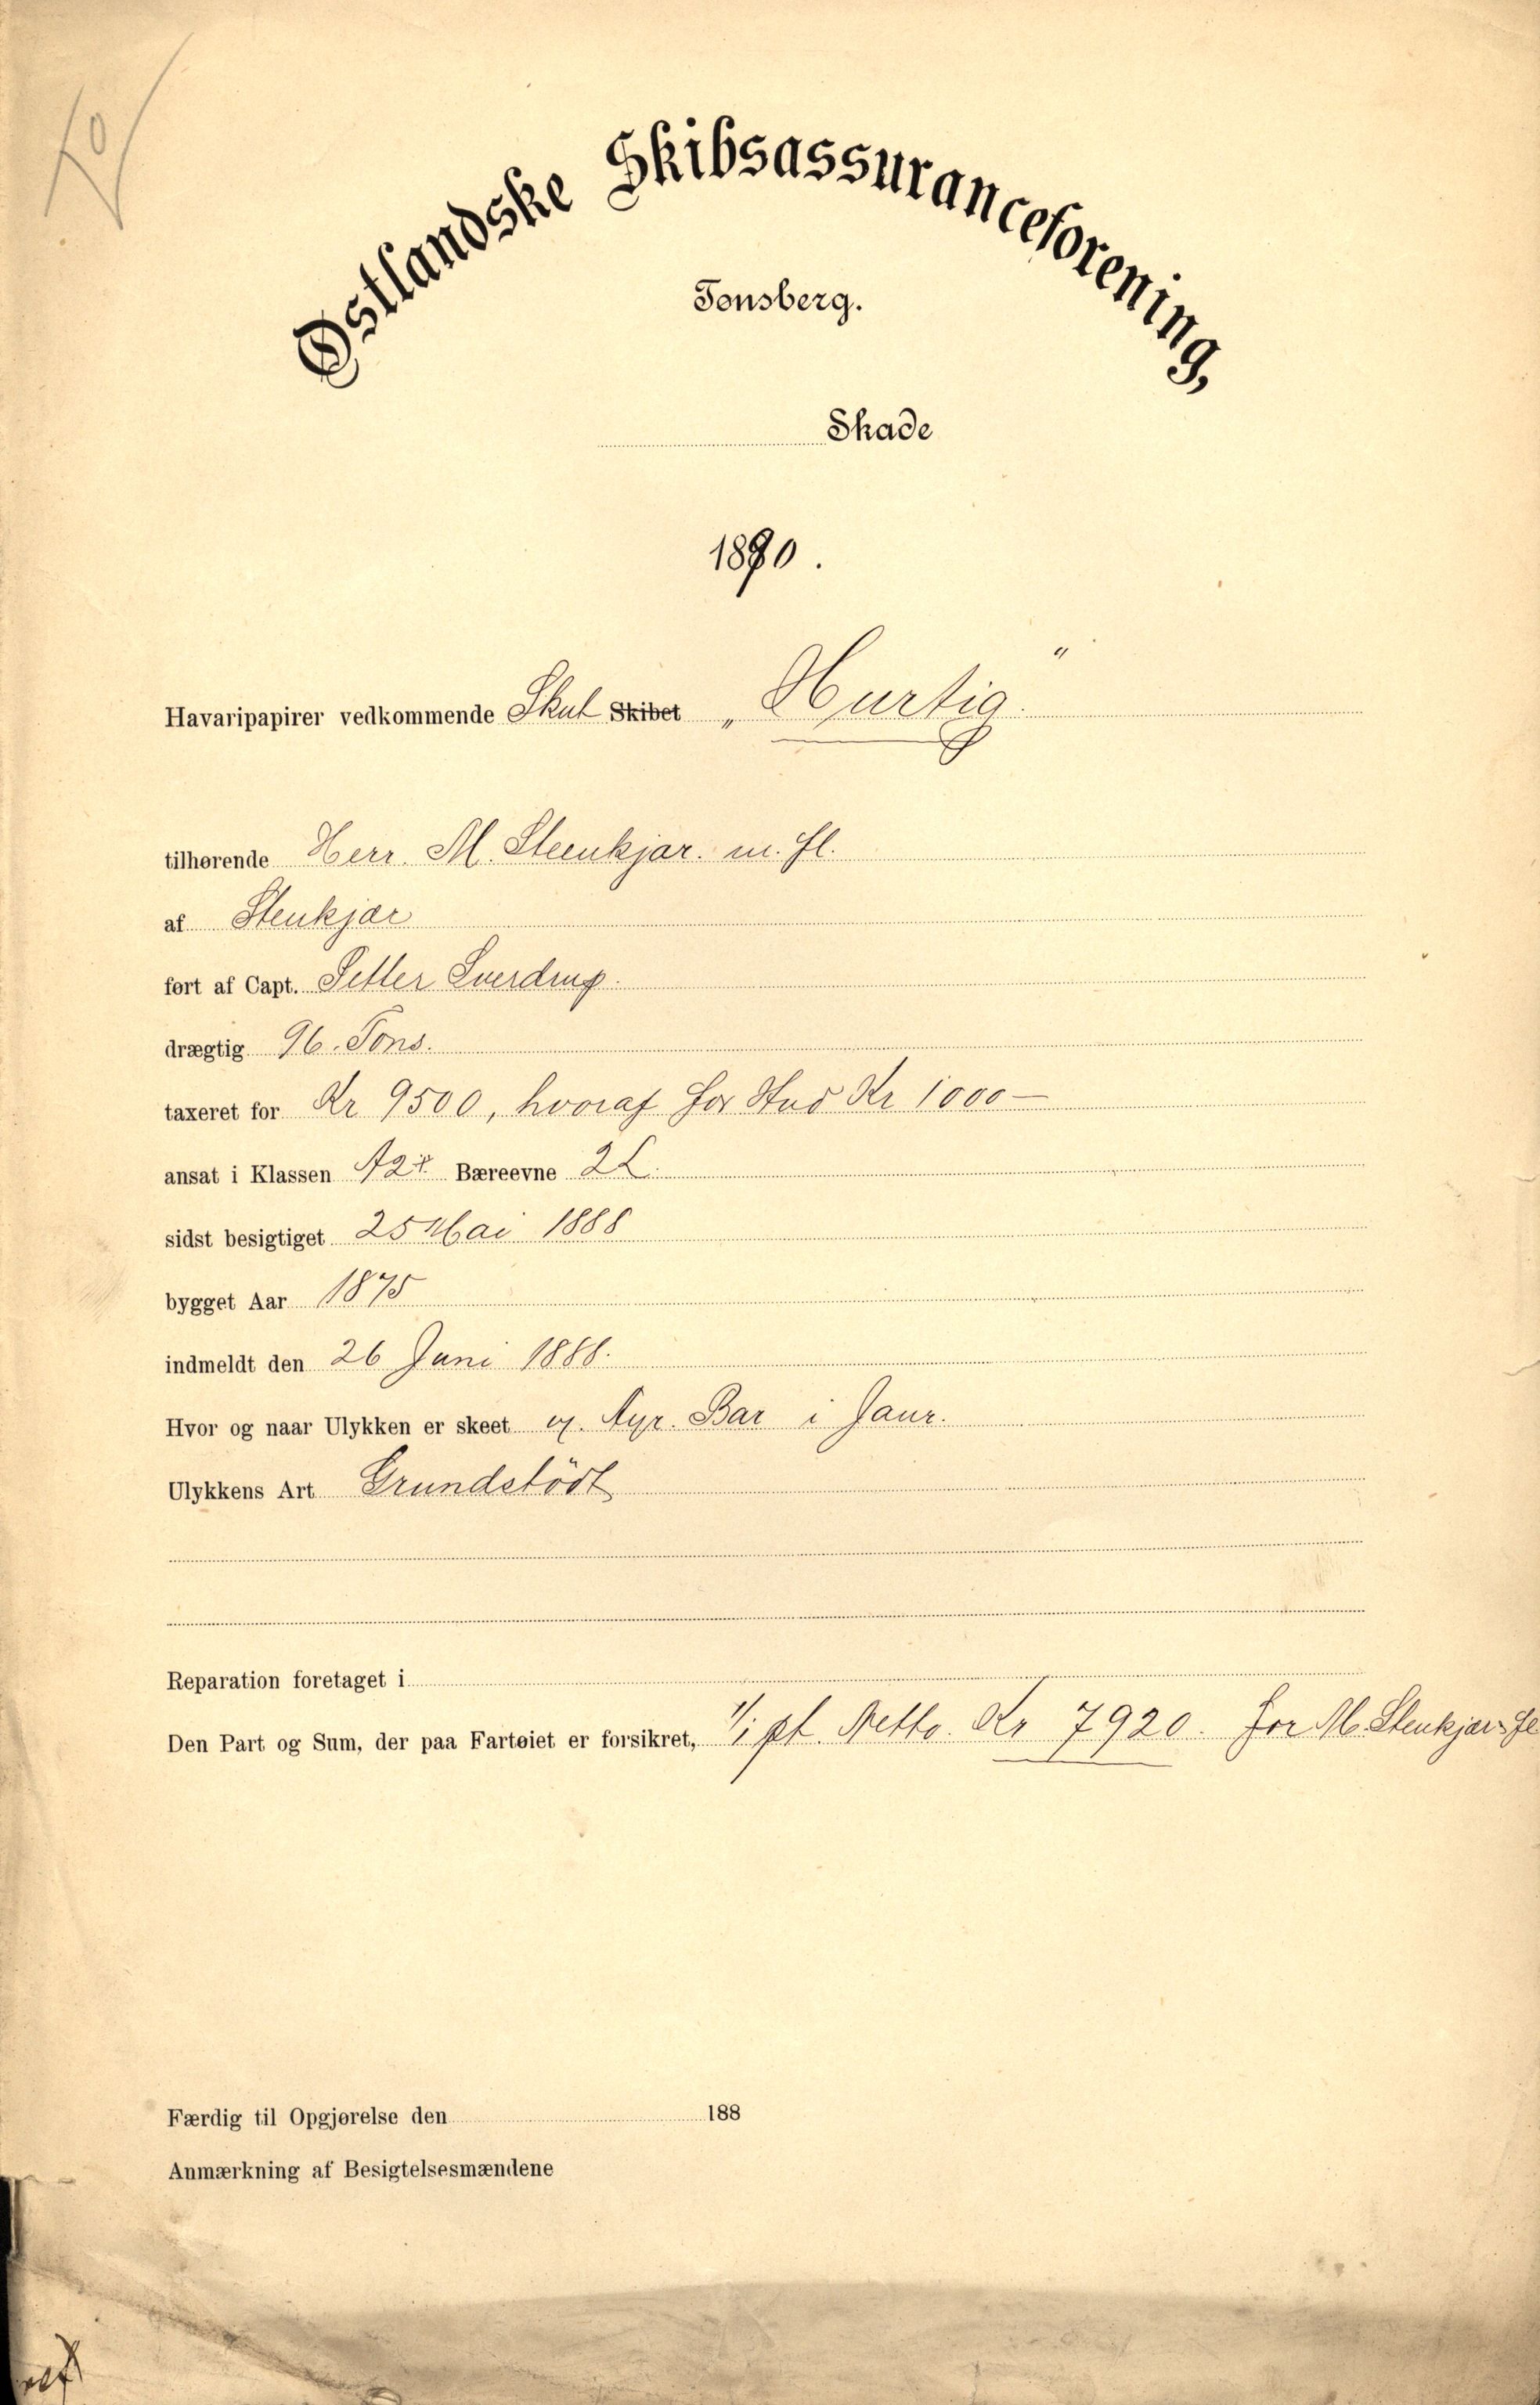 Østlandske Skibsassuranceforening,
Tønsberg.
Skade
1890.
Havaripapirer vedkommende Skut Skibet „Hurtig"
tilhørende Herr. M. Steenkjær. m. fl.
af Stenkjær
ført af Capt. Petter Sverdrup.
drægtig 96. Tons.
taxeret for Kr 9500, hvoraf for Hud Kr 1000—
ansat i Klassen A2 Bæreevne 2L.
sidst besigtiget 25 Mai 1888
bygget Aar 1875
indmeldt den 26 Juni 1888.
Hvor og naar Ulykken er skeet Ayr. Bar i Janr.
Ulykkens Art Grundstödt
Reparation foretaget i
Den Part og Sum, der paa Fartøiet er forsikret, 1/1 pt. Netto. Kr 7920. for M. Stenkjær fl
Færdig til Opgjørelse den 188
Anmærkning af Besigtelsesmændene